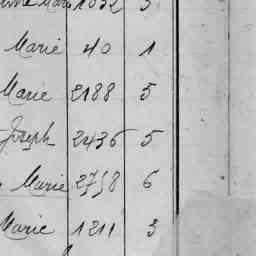 1032 5
Marie 40 1
Marie 2188 5
Joseph 2436 5
Marie 2758 6
Marie 1211 3